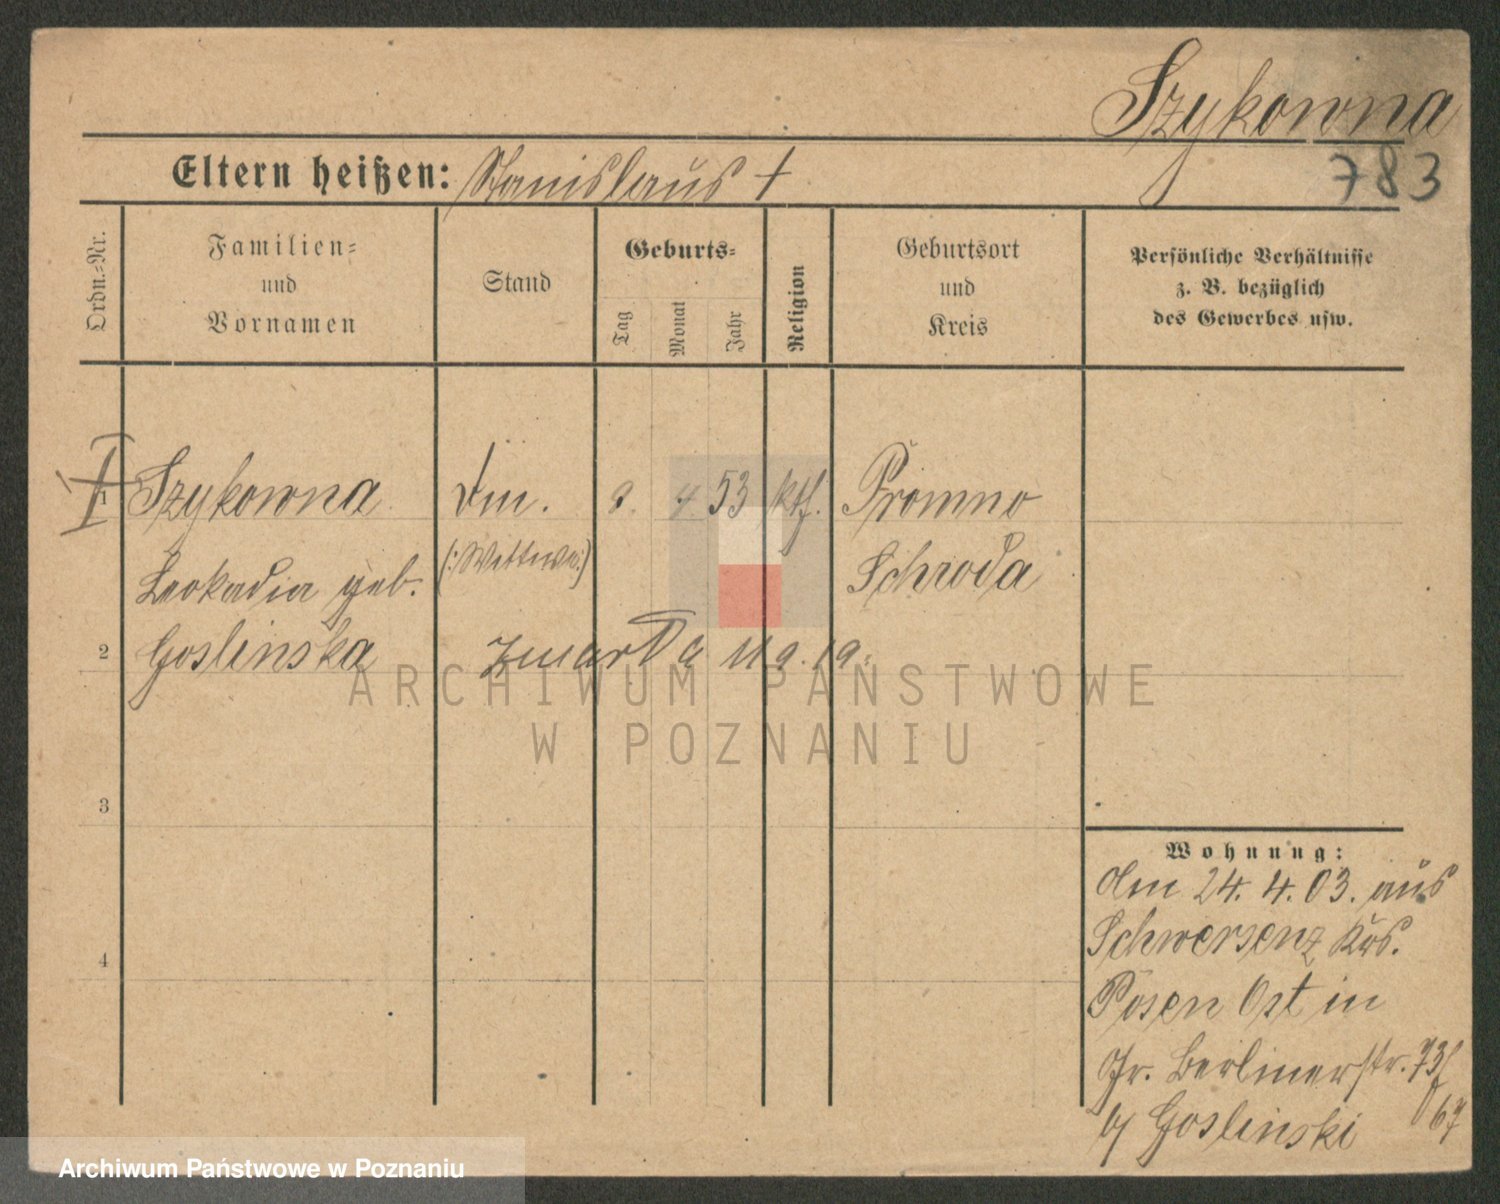 Szykowna
783
Eltern heißen: Stanislaus †
Ordn.-Nr.
Familien-
und
Vornamen
Stand
Geburts-
Tag
Monat
Jahr
Religion
Geburtsort
und
Kreis
Persönliche Verhältnisse
z. B. bezüglich
des Gewerbes usw.
1 Szykowna 4 53 kth. Promno
Leokadia geb. (:Wittwe:) Schroda
2 Goslinska zmarła 9. 19.
3
4
Wohnung:
Am 24. 4. 03. aus
Schwersenz Krs.
Posen Ost in
Gr. Berlinerstr. 73/
67
b/ Goslinski
ARCHIWUM PAŃSTWOWE
W POZNANIU
Archiwum Państwowe w Poznaniu